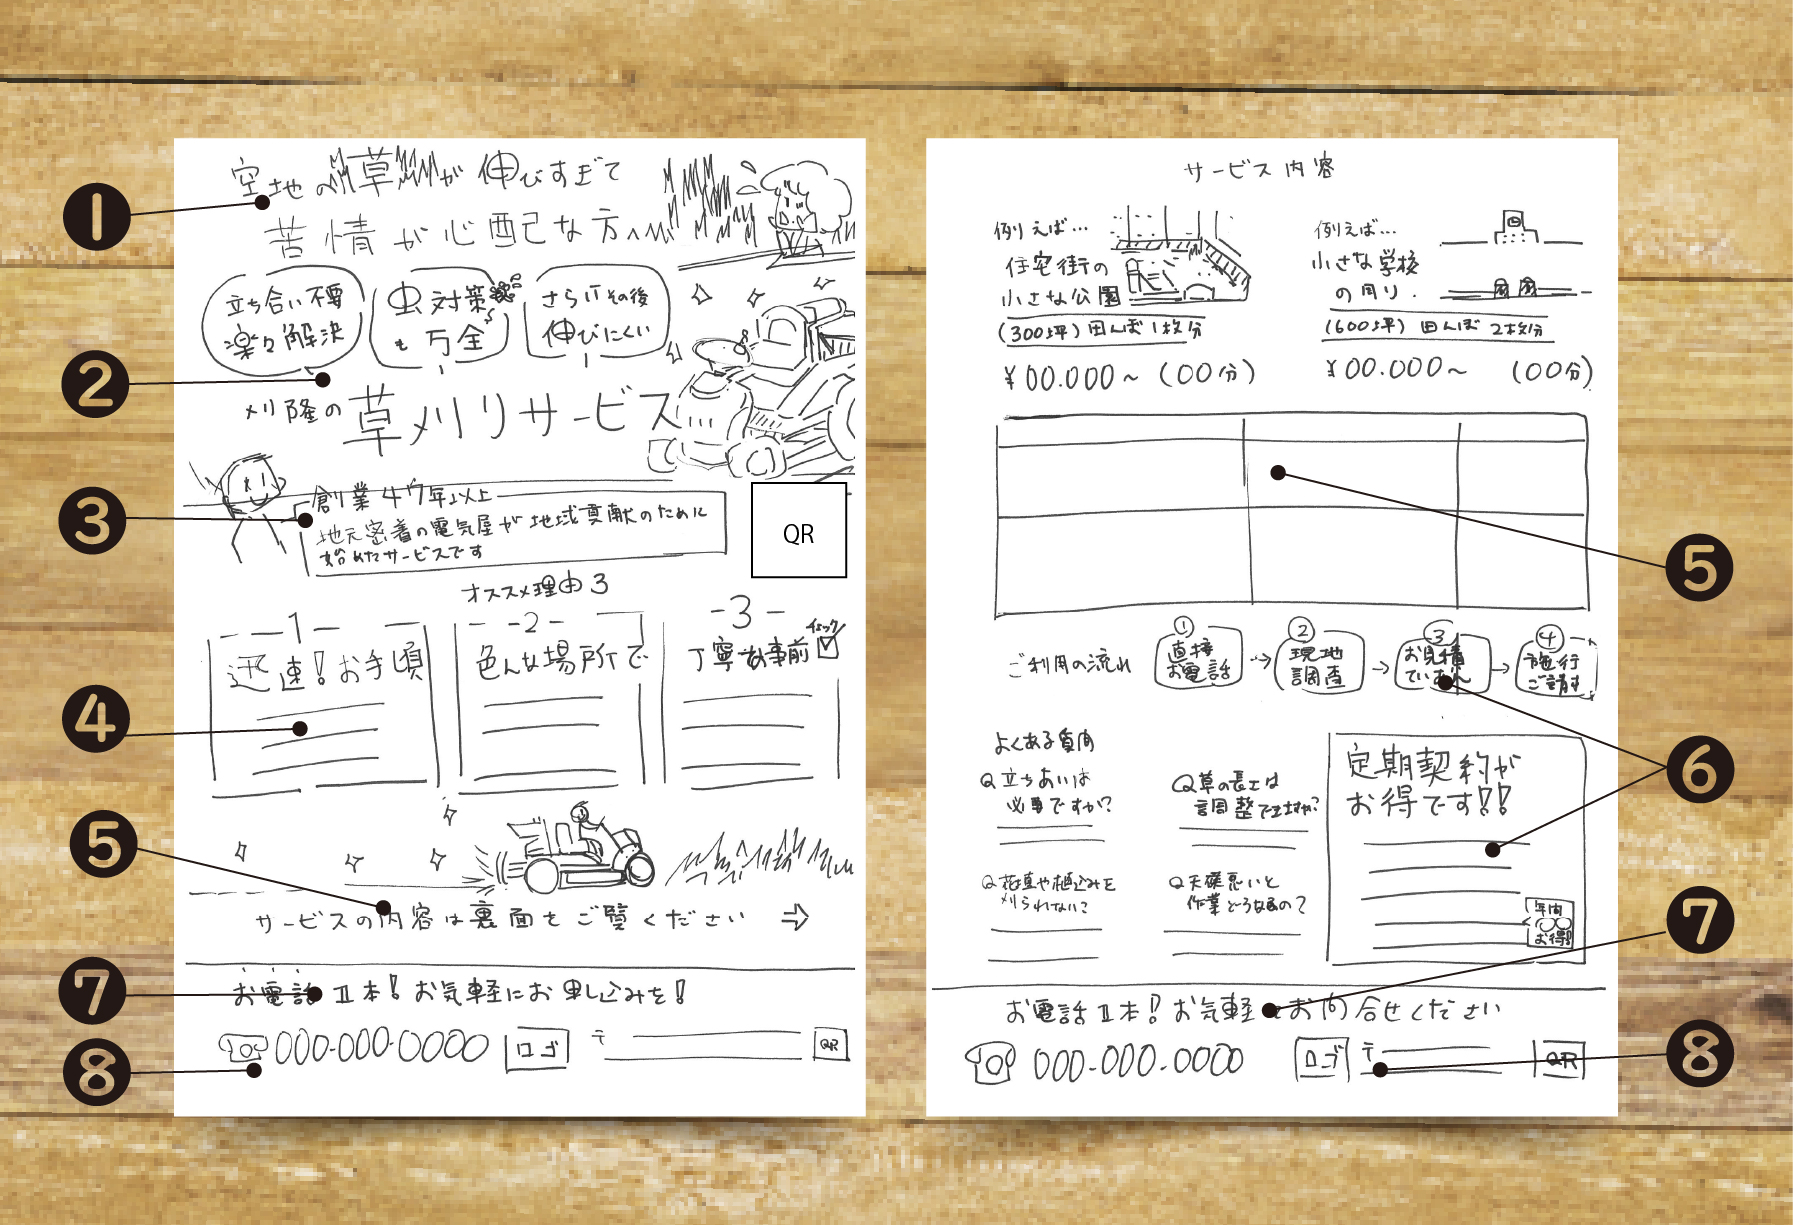 空地の草が伸びすぎて
苦情が心配な方へ
立ち合い不要
楽々解決
虫対策
も万全
さらにその後
伸びにくい
刈隆の草刈りサービス
創業47年以上
地元密着の電気屋が地域貢献のために
始めたサービスです
QR
オススメ理由3
-1-
迅速!お手頃
-2-
色んな場所で
-3-
丁寧な事前
チェック
サービスの内容は裏面をご覧ください ⇨
お電話1本!お気軽にお申し込みを!
000-000-0000
ロゴ
〒
QR
1
2
3
4
5
7
8
サービス内容
例えば…
住宅街の
小さな公園
(300坪)田んぼ1枚分
¥00.000〜(00分)
例えば…
小さな学校
の周り.
(600坪)田んぼ2枚分
¥00.000〜(00分)
ご利用の流れ
①
直接
お電話
→
②
現地
調査
→
3
お見積
ていあん
→
④
施行
ご請求
よくある質問
Q立ちあいは
必要ですか?
Q草の長さは
調整できますか?
Q花壇や植込みを
刈られない?
Q天候悪いと
作業どうなるの?
定期契約が
お得です!!
年間
〇〇
お得!
お電話1本!お気軽にお問合せください
000-000-0000
ロゴ
〒
QR
5
6
7
8